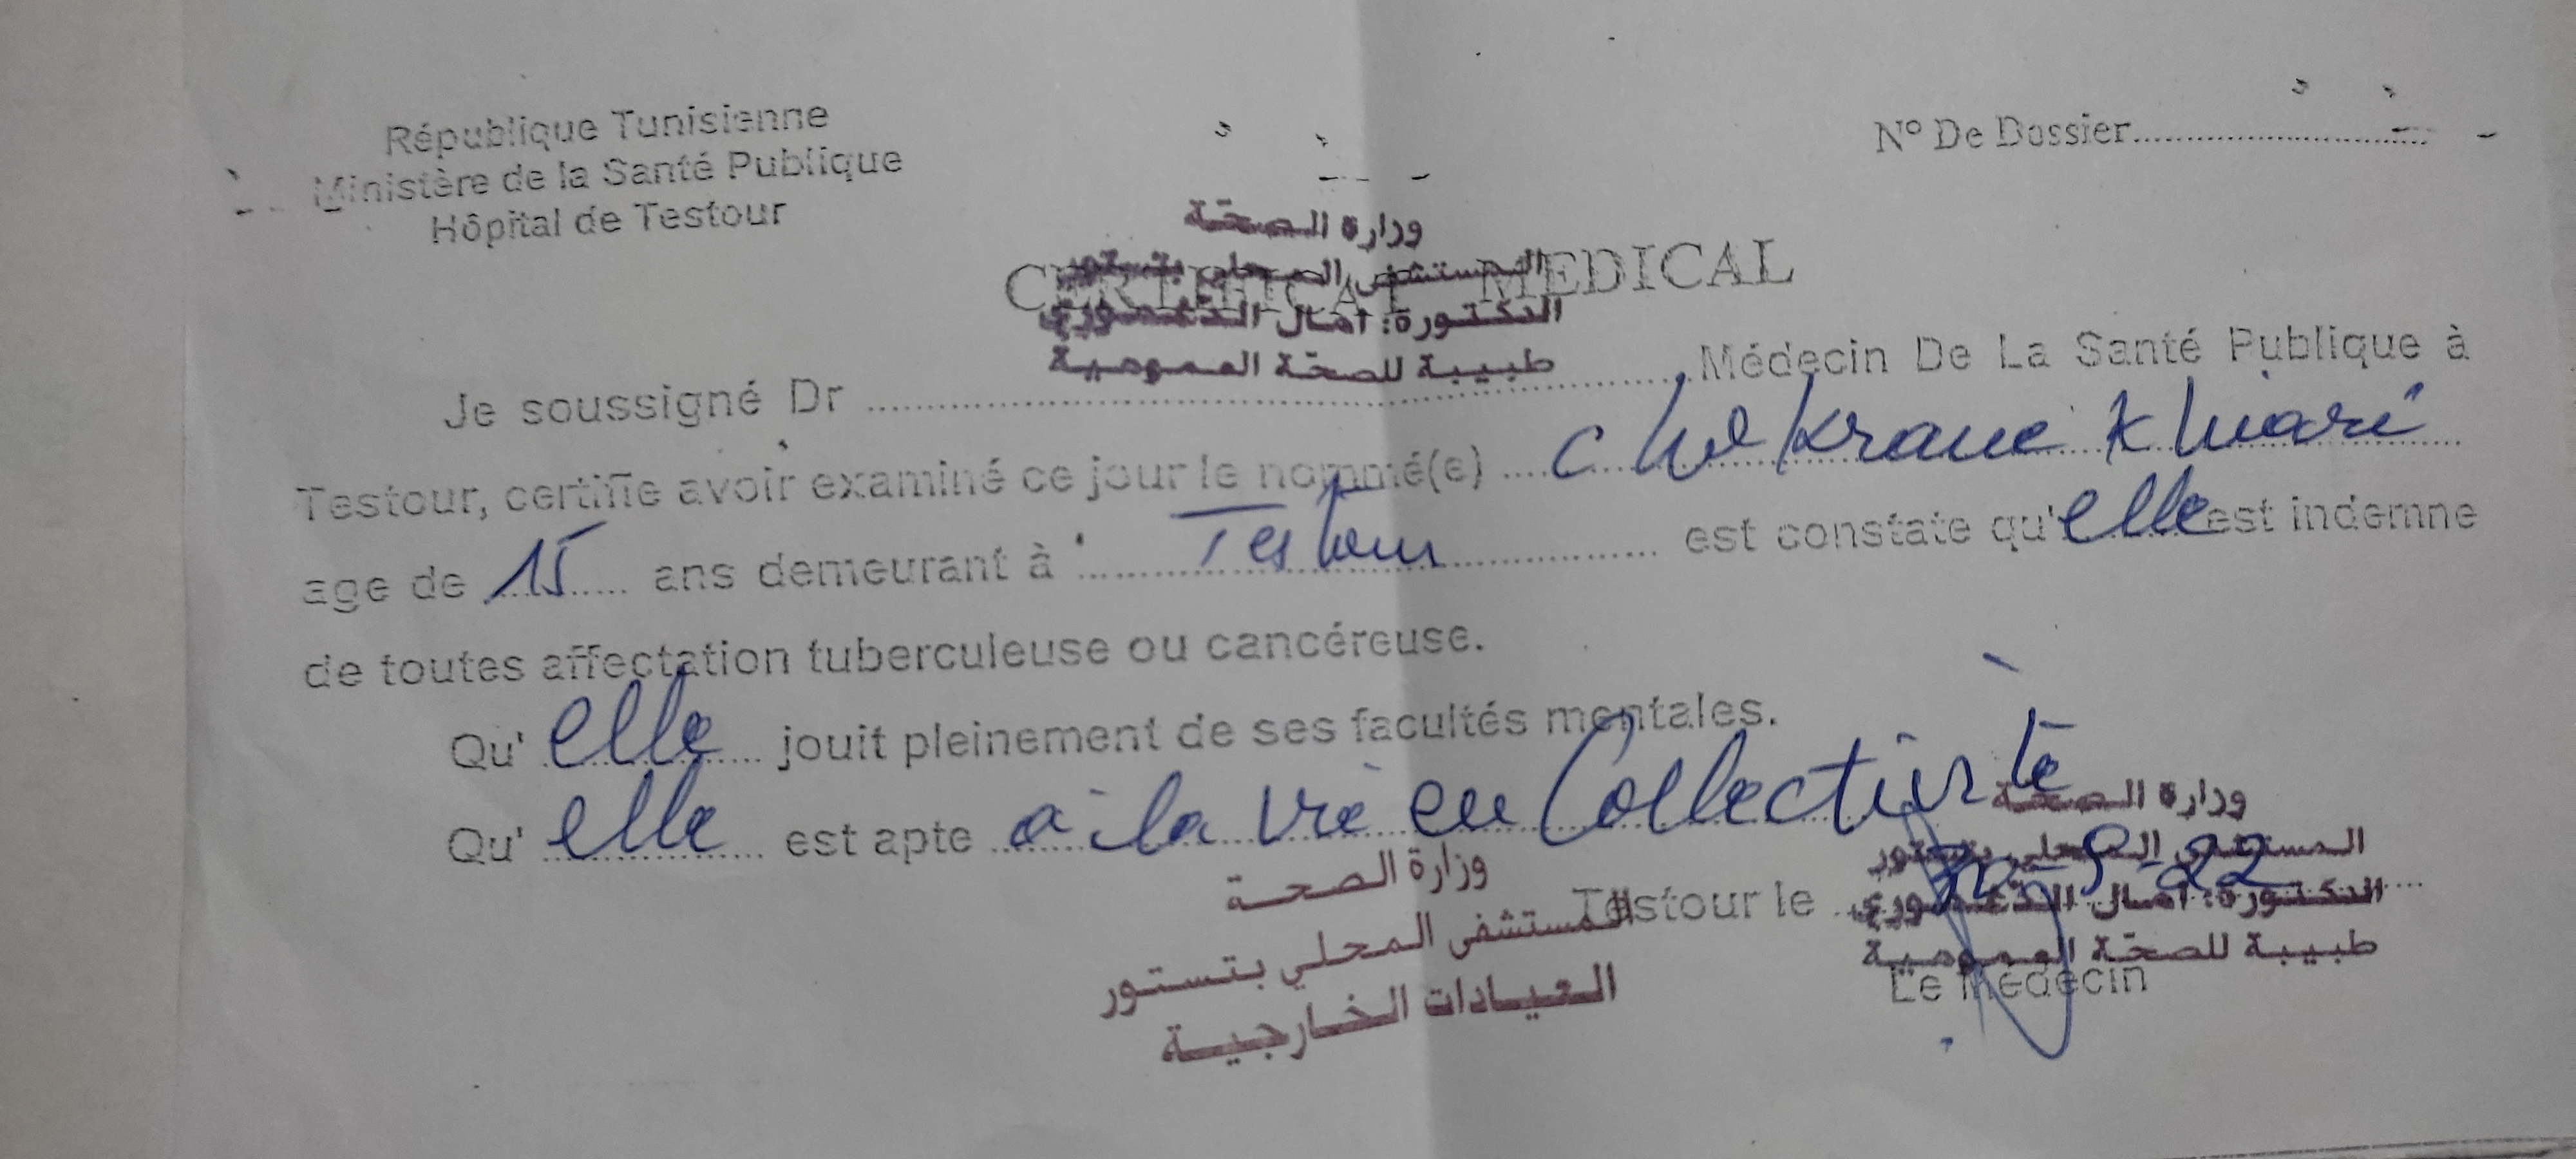 République Tunisienne
Ministère de la Santé Publique
Hôpital de Testour
N° De Dossier
وزارة الـصحـّة
المستشفى المحلي بتستور
CERTIFICAT MEDICAL
الدكتورة: أمال
طبيبة للصحّة العمومية
Je soussigné Dr Médecin De La Santé Publique à
Testour, certifie avoir examiné ce jour le nommé(e) Chekrane Khiari
age de 15 ans demeurant à Testour est constate qu'elle est indemne
de toutes affectation tuberculeuse ou cancéreuse.
Qu' elle jouit pleinement de ses facultés mentales.
Qu' elle est apte à la vie en Collectivité
وزارة الصحة
المستشفى المحلي بتستور
العيادات الخارجية
وزارة الصحّة
المستشفى المحلي بتستور
Testour le 22
الدكتورة: أمال
طبيبة للصحّة العمومية
Le Médecin